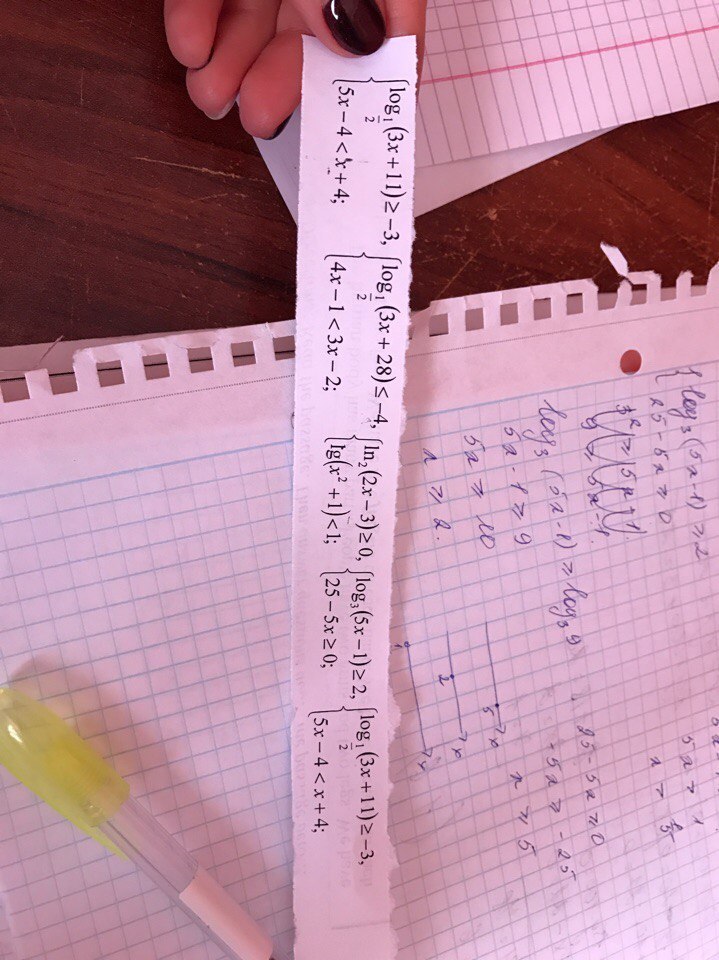 log_{1/2}(3x+11) ≥ −3,
5x − 4 < x + 4;
log_{1/2}(3x + 28) ≤ −4,
4x − 1 < 3x − 2;
ln₂(2x − 3) ≥ 0,
lg(x² + 1) < 1;
log₃(5x − 1) ≥ 2,
25 − 5x ≥ 0;
log_{1/2}(3x + 11) ≥ −3,
5x − 4 < x + 4;
log₃(5x-1) ≥ 2
25 - 5x ≥ 0
log₃(5x-1) ≥ log₃9
5x - 1 ≥ 9
5x ≥ 10
x ≥ 2.
25 - 5x ≥ 0
-5x ≥ -25
x ≥ 5
2
5
x
x
x